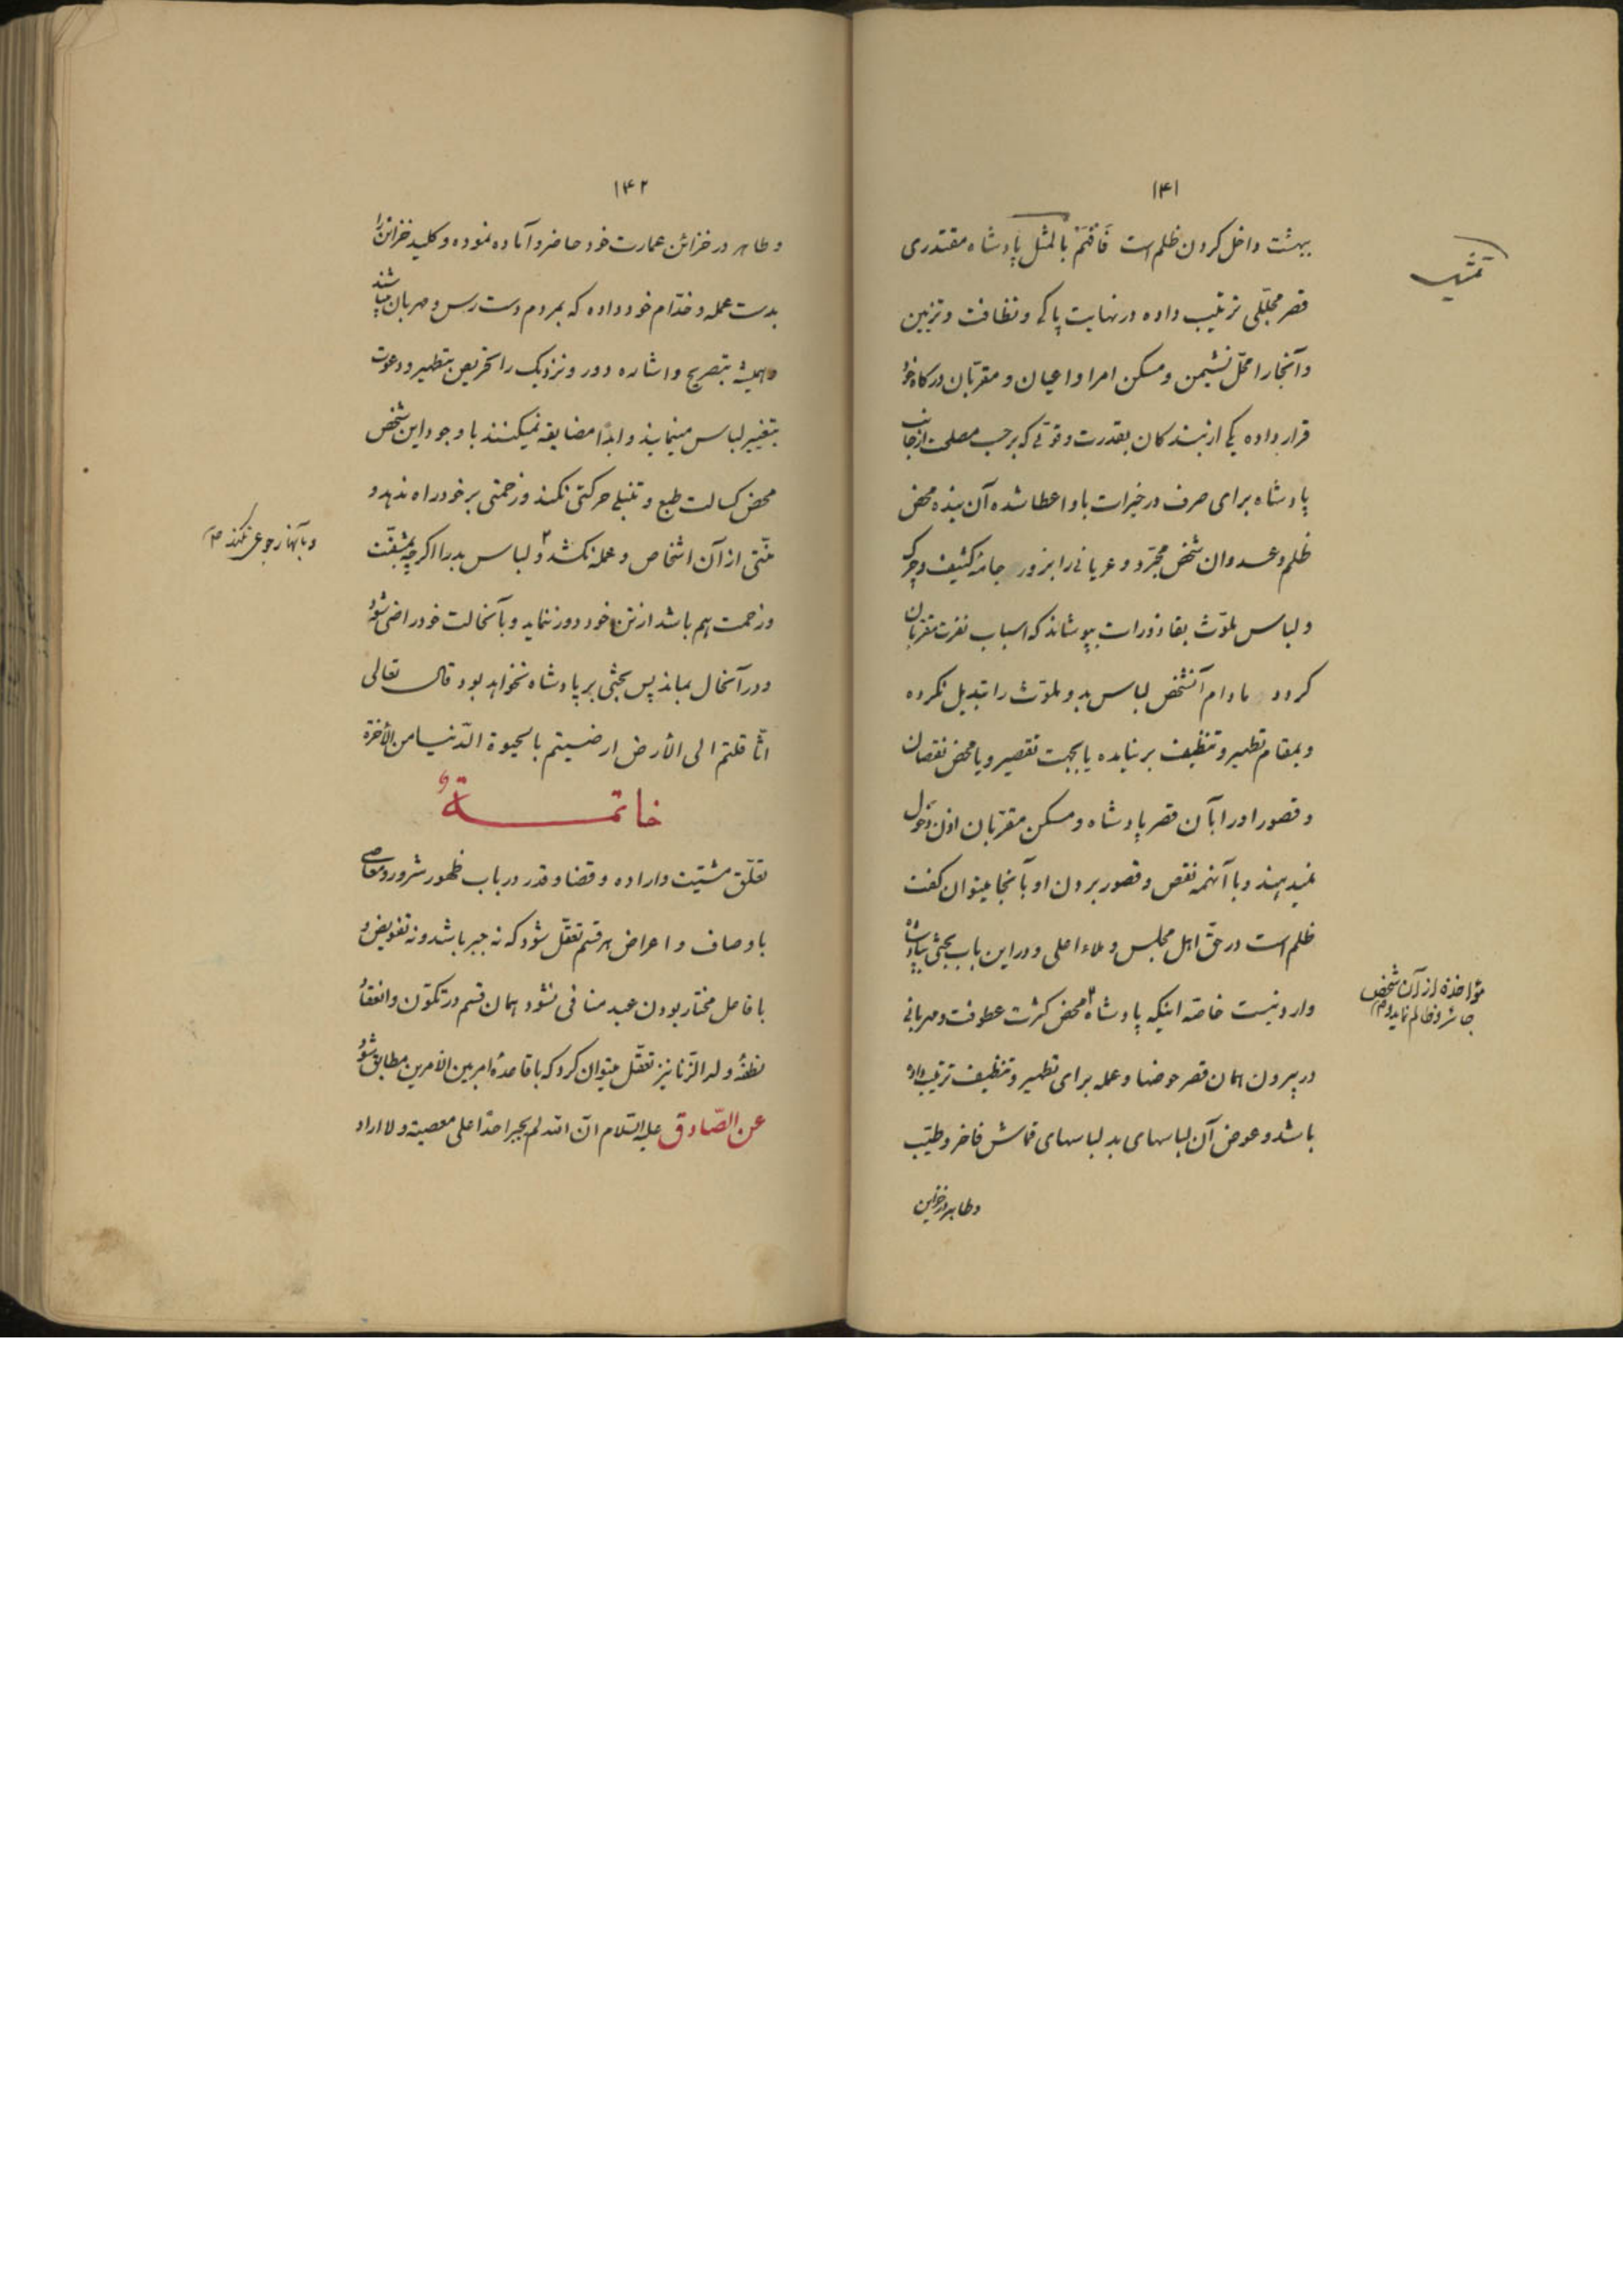 ۱۴۱
بهشت داخل کردن ظلم است فَافهَم بالمثل پادشاه مقتدری
تمثیل
قصر مجللی ترتیب داده در نهایت پاکی و نظافت و تزیین
و آنجا را محلّ نشیمن و مسکن امرا و اعیان و مقرّبان درگاه خود
قرار داده یکی از بندگان بقدرت و قوّتی که برحسب مصلحت از جانب
پادشاه برای صرف در خیرات باو اعطا شده آن بنده محض
ظلم و عدوان شخص مجرّد و عریانی را بزور جامهٔ کثیف و چرک
و لباس ملوّث بقاذورات بپوشاند که اسباب نفرت مقربان
گردد مادام آنشخص لباس بد و ملوّث را تبدیل نکرده
و بمقام تطهیر و تنظیف برنیامده یا بجهت تقصیر و یا محض نقصان
و قصور او را بآن قصر پادشاه و مسکن مقرّبان اذن دخول
نمیدهند و با آنهمه نقص و قصور بردن او بآنجا میتوان گفت
ظلم است در حقّ اهل مجلس و ملاء اعلی و در این باب بحثی بپادشاه
وارد نیست خاصّه اینکه پادشاه محض کثرت عطوفت و مهربانی
مؤاخذه از آن شخص
جائر و ظالم نماید و
در بیرون همان قصر حوضها و عمله برای تطهیر و تنظیف ترتیب داده
باشد و عوض آن لباسهای بد لباسهای قماش فاخر و طیّب
و طاهر در خزاین
۱۴۲
و طاهر در خزائن عمارت خود حاضر و آماده نموده و کلید خزائن را
بدست عمله و خدّام خود داده که بمردم دست رس و مهربان میباشند
و همیشه بتصریح و اشاره دور و نزدیک را تحریص بتطهیر و دعوت
بتغییر لباس مینمایند و ابدًا مضایقه نمیکنند با وجود این شخص
محض کسالت طبع و تنبلی حرکتی نکند و زحمتی بر خود راه ندهد و
منّتی از آن اشخاص و عمله نکشد و لباس بد را اگرچه بمشقّت
و بآنها رجوعی نکند
و زحمت هم باشد از تن خود دور ننماید و بآنحالت خود راضی شود
و در آنحال بماند پس بحثی بر پادشاه نخواهد بود قال تعالی
اثّاقلتم الی الأرض ارضیتم بالحیوة الدّنیا من الأخرة
خاتمـــة
تعلّق مشیّت و اراده و قضا و قدر در باب ظهور شرور و معاصی
باوصاف و اعراض هر قسم تعقّل شود که نه جبر باشد و نه تفویض و
با فاعل مختار بودن عبد منافی نشود همان قسم در تکوّن و انعقاد
نطفهٔ ولد الزّنا نیز تعقّل میتوان کرد که با قاعدهٔ امر بین الأمرین مطابق شود
عن الصّادق علیه السّلام انّ الله لم یجبر احدًا علی معصیته و لا اراد